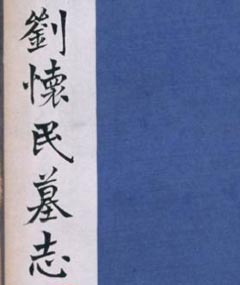 劉懷民墓志